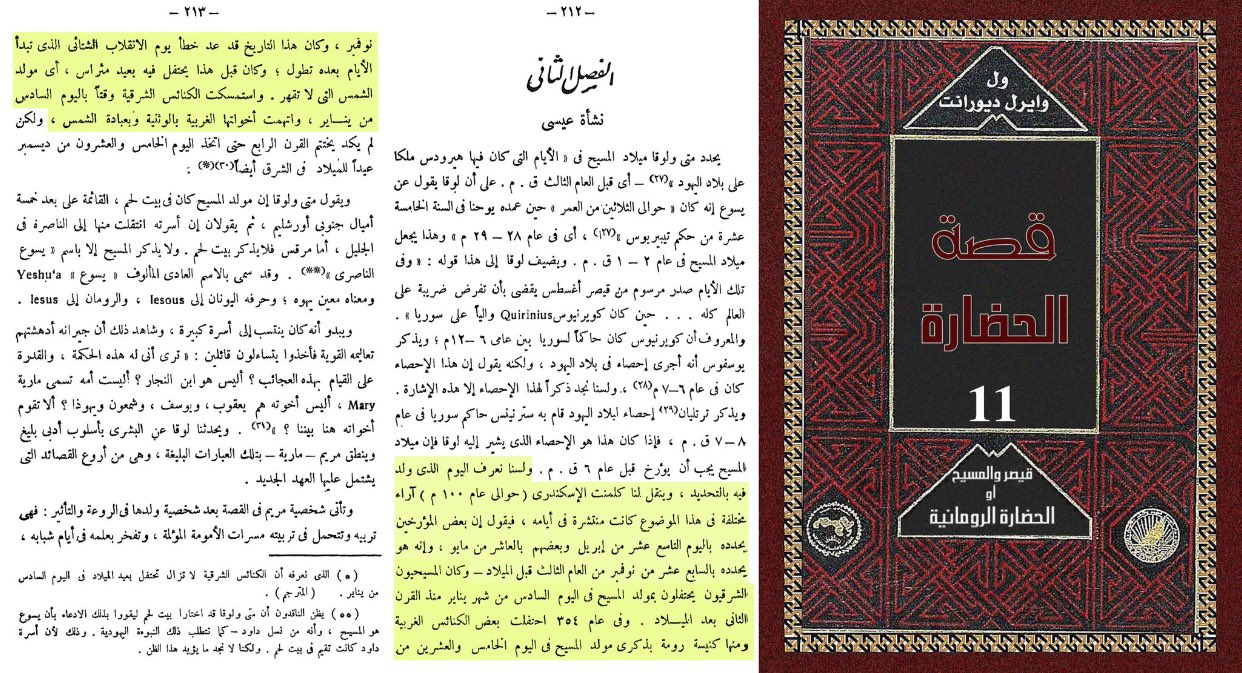 ول
وايرل ديورانت
قصة
الحضارة
11
قيصر والمسيح
أو
الحضارة الرومانية
– ٢١٢ –
الفصل الثاني
نشأة عيسى
يحدد متى ولوقا ميلاد المسيح فى « الأيام التى كان فيها هيرودس ملكا
على بلاد اليهود »(٢٧) – أى قبل العام الثالث ق . م . على أن لوقا يقول عن
يسوع إنه كان « حوالى الثلاثين من العمر » حين عمده يوحنا فى السنة الخامسة
عشرة من حكم تيبيريوس »(٢٧أ) ، أى فى عام ٢٨ – ٢٩ م » وهذا يجعل
ميلاد المسيح فى عام ٢ – ١ ق . م . ويضيف لوقا إلى هذا قوله : « وفى
تلك الأيام صدر مرسوم من قيصر أغسطس يقضى بأن تفرض ضريبة على
العالم كله . . . حين كان كويرنيوس Quirinius والياً على سوريا » .
والمعروف أن كويرنيوس كان حاكماً لسوريا بين عامى ٦ –١٢م ؛ ويذكر
يوسفوس أنه أجرى إحصاء فى بلاد اليهود ، ولكنه يقول إن هذا الإحصاء
كان فى عام ٦–٧ م(٢٨) ، ولسنا نجد ذكراً لهذا الإحصاء إلا هذه الإشارة .
ويذكر ترتليان(٢٩) إحصاء لبلاد اليهود قام به سترنينس حاكم سوريا فى عام
٨ – ٧ ق . م ، فإذا كان هذا هو الإحصاء الذى يشير إليه لوقا فإن ميلاد
المسيح يجب أن يؤرخ قبل عام ٦ ق . م . ولسنا نعرف اليوم الذى ولد
فيه بالتحديد ، وينقل لنا كلمنت الإسكندرى ( حوالى عام ١٠٠ م ) آراء
مختلفة فى هذا الموضوع كانت منتشرة فى أيامه ، فيقول إن بعض المؤرخين
يحدده باليوم التاسع عشر من إبريل وبعضهم بالعاشر من مايو ، وإنه هو
يحدده بالسابع عشر من نوفمبر من العام الثالث قبل الميلاد – وكان المسيحيون
الشرقيون يحتفلون بمولد المسيح فى اليوم السادس من شهر يناير منذ القرن
الثانى بعد الميلاد . وفى عام ٣٥٤ احتفلت بعض الكنائس الغربية
ومنها كنيسة رومة بذكرى مولد المسيح فى اليوم الخامس والعشرين من
– ٢١٣ –
نوفمبر ، وكان هذا التاريخ قد عد خطأ يوم الانقلاب الشتائى الذى تبدأ
الأيام بعده تطول ؛ وكان قبل هذا يحتفل فيه بعيد مثراس ، أى مولد
الشمس التى لا تقهر . واستمسكت الكنائس الشرقية وقتاً باليوم السادس
من ينساير ، واتهمت أخواتها الغربية بالوثنية وبعبادة الشمس ، ولكن
لم يكد يختتم القرن الرابع حتى اتخذ اليوم الخامس والعشرون من ديسمبر
عيداً للميلاد فى الشرق أيضاً(٣٠)(*) :
ويقول متى ولوقا إن مولد المسيح كان فى بيت لحم ، القائمة على بعد خمسة
أميال جنوبى أورشليم ، ثم يقولان إن أسرته انتقلت منها إلى الناصرة فى
الجليل ، أما مرقس فلا يذكر بيت لحم . ولا يذكر المسيح إلا باسم « يسوع
الناصرى »(**) . وقد سمى بالاسم العادى المألوف « يسوع » Yeshu'a
ومعناه معين يهوه ؛ وحرفه اليونان إلى Iesous ، والرومان إلى Iesus .
ويبدو أنه كان ينتسب إلى أسرة كبيرة ، وشاهد ذلك أن جيرانه أدهشتهم
تعاليمه القوية فأخذوا يتساءلون قائلين : « ترى أنى له هذه الحكمة ، والقدرة
على القيام بهذه العجائب ؟ أليس هو ابن النجار ؟ أليست أمه تسمى مارية
Mary ، أليس أخوته هم يعقوب ، ويوسف ، وشمعون ويهوذا ؟ ألا تقوم
أخواته هنا بيننا ؟ »(٣١) . ويحدثنا لوقا عن البشرى بأسلوب أدبى بليغ
وينطق مريم – مارية – بتلك العبارات البليغة ، وهى من أروع القصائد التى
يشتمل عليها العهد الجديد .
وتأتى شخصية مريم فى القصة بعد شخصية ولدها فى الروعة والتأثير : فهى
تربيه وتتحمل فى تربيته مسرات الأمومة المؤلمة ، وتفخر بعلمه فى أيام شبابه ،
(*) الذى نعرفه أن الكنائس الشرقية لا تزال تحتفل بعيد الميلاد فى اليوم السادس
من يناير . ( المترجم ) .
(**) يظن الناقدون أن متى ولوقا قد اختارا بيت لحم ليقووا بذلك الادعاء بأن يسوع
هو المسيح ، وأنه من نسل داود – كما تتطلب ذلك النبوءة اليهودية . وذلك لأن أسرة
داود كانت تقيم فى بيت لحم . ولكنا لا نجد ما يؤيد هذا الظن .